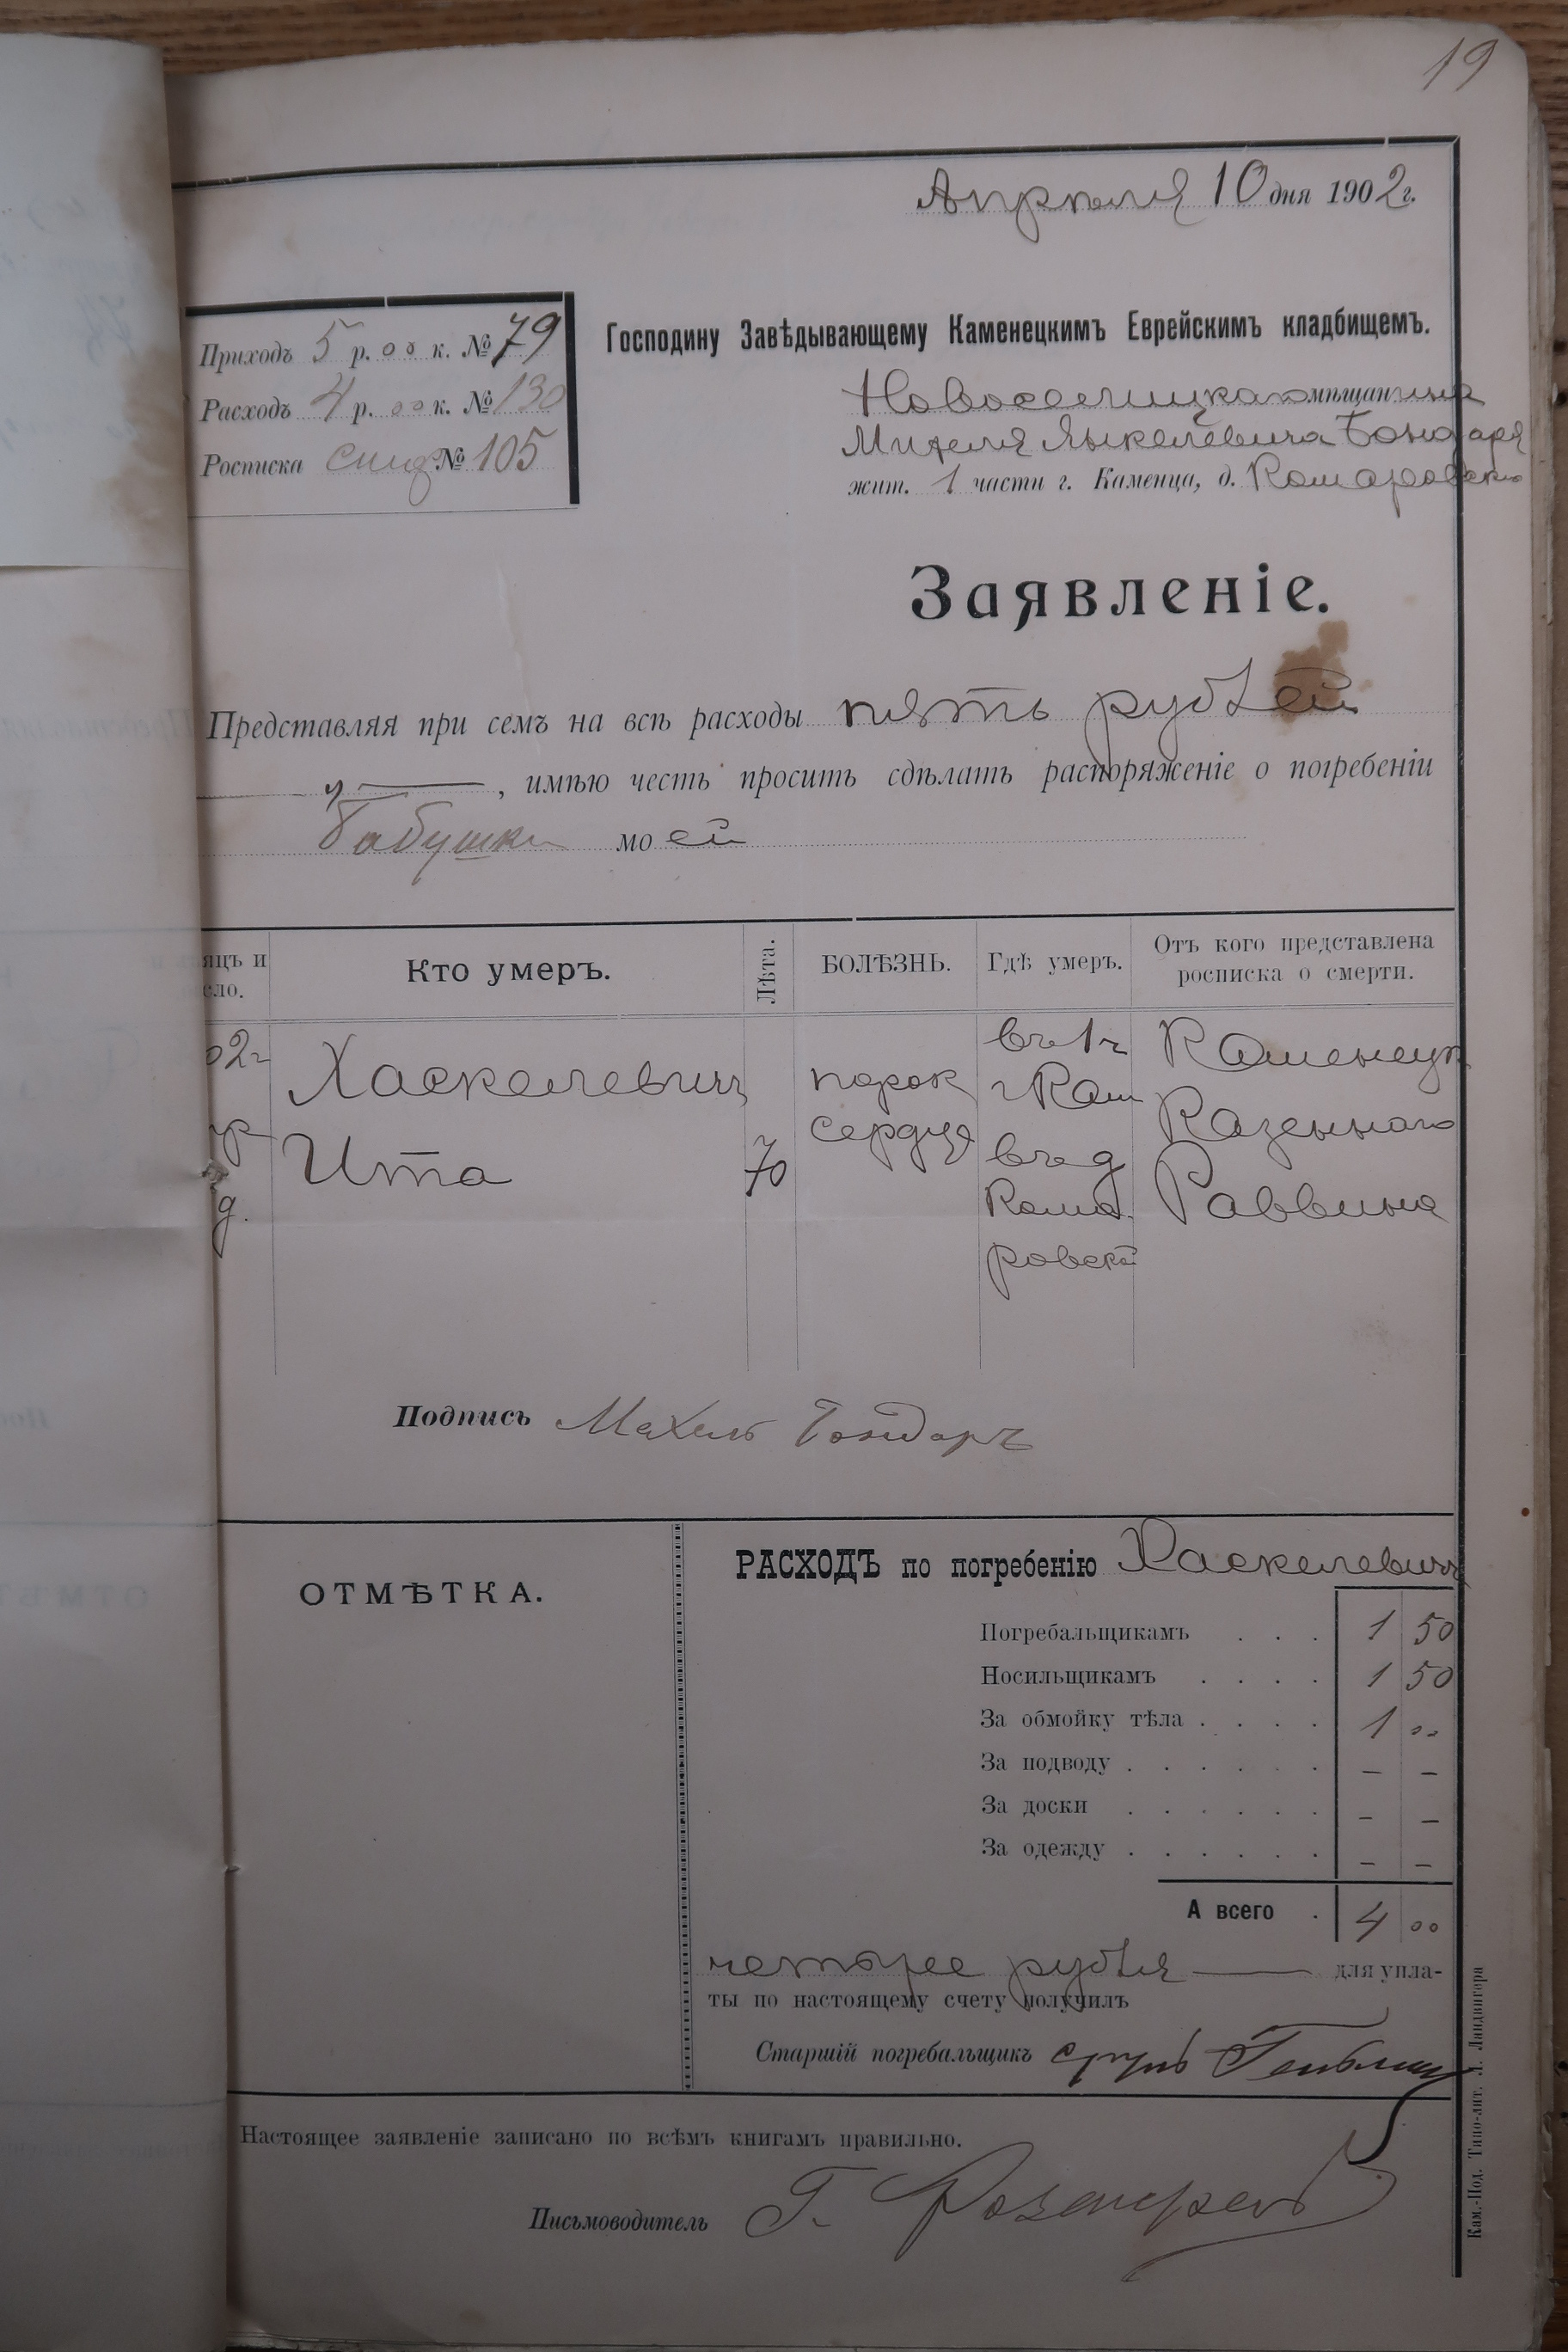 19
Апрѣля 10 дня 1902 г.
Приходъ 5 р. 00 к. № 79
Расходъ 4 р. 00 к. № 130
Росписка № 105
Господину Завѣдывающему Каменецкимъ Еврейскимъ кладбищемъ.
Новоселицкаго мѣщанина
Янкелевича Бондаря
жит. 1 части г. Каменца, д. Комаровско
Заявленіе.
Представляя при семъ на всѣ расходы пять рублей
, имѣю честь просить сдѣлать распоряженіе о погребеніи
бабушки моей
яцъ и
сло.
Кто умеръ.
Лѣта.
БОЛѢЗНЬ.
Гдѣ умеръ.
Отъ кого представлена
росписка о смерти.
02 г
Хаскелевичъ
Ита
70
порок
сердця
въ 1 ч
г Кам
въ д
Кома
ровской
Каменецк
Казеннаго
Раввина
Подпись Махель Бондаръ
ОТМѢТКА.
РАСХОДЪ по погребенію Хаскелевичъ
Погребальщикамъ . . . 1 50
Носильщикамъ . . . . 1 50
За обмойку тѣла . . . . 1 00
За подводу . . . . . . – –
За доски . . . . . . – –
За одежду . . . . . . – –
А всего . 4 00
четырее рубля для упла-
ты по настоящему счету получилъ
Старшій погребальщикъ
Настоящее заявленіе записано по всѣмъ книгамъ правильно.
Письмоводитель Г.
Кам.-Под. Типо-лит. Л. Ландвигера